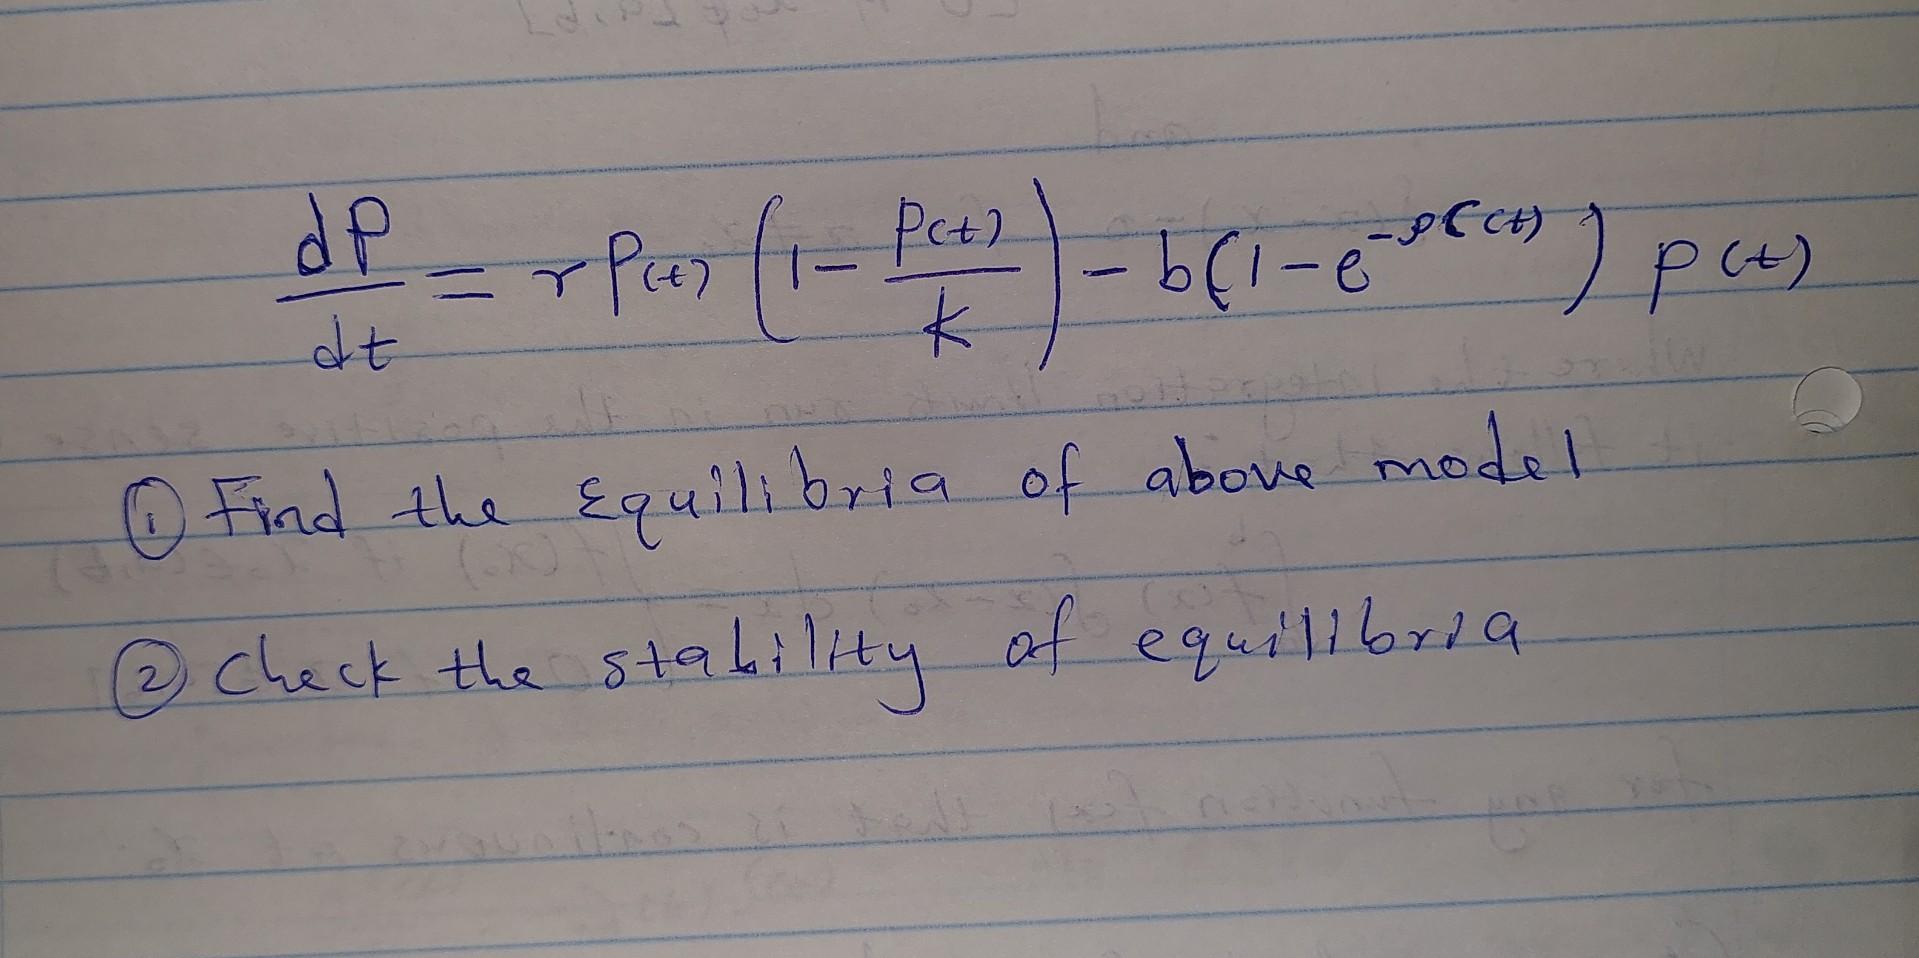 dP/dt = rP(t) (1 - P(t)/k) - b(1-e^{-ρC(t)}) P(t)
① Find the Equilibria of above model
② Check the stability of equilibria